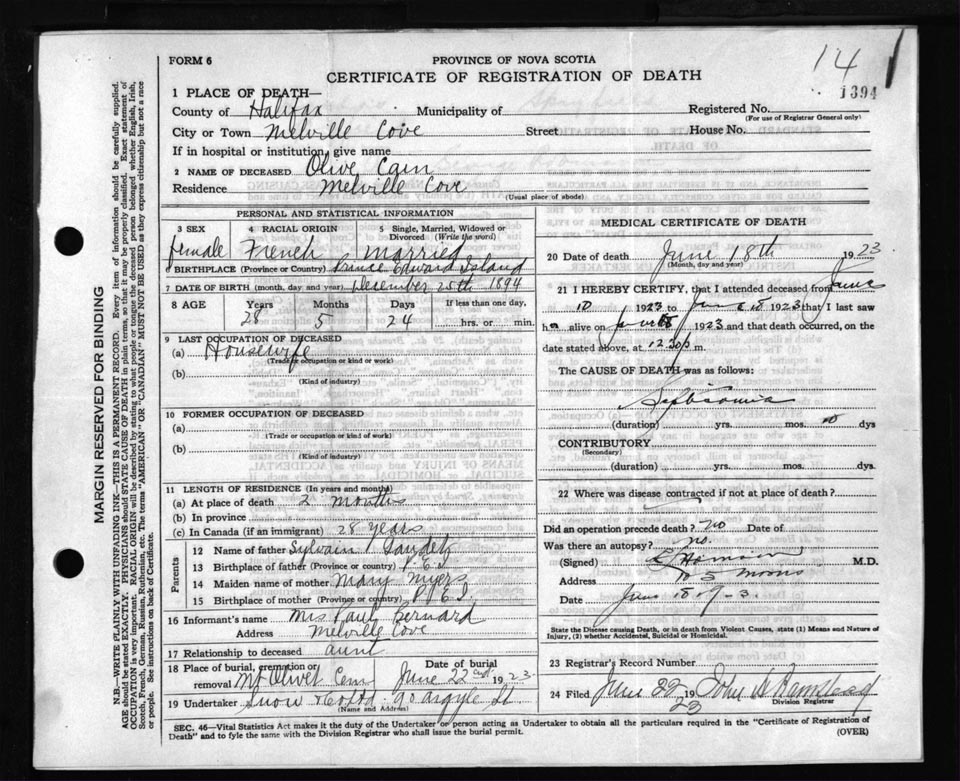 14
1394
FORM 6
PROVINCE OF NOVA SCOTIA
CERTIFICATE OF REGISTRATION OF DEATH
1 PLACE OF DEATH—
County of Halifax Municipality of Registered No.
(For use of Registrar General only)
City or Town Melville Cove Street House No.
If in hospital or institution, give name
2 NAME OF DECEASED Olive Cain
Residence Melville Cove
(Usual place of abode)
PERSONAL AND STATISTICAL INFORMATION
3 SEX 4 RACIAL ORIGIN 5 Single, Married, Widowed or Divorced (Write the word)
female French Married
6 BIRTHPLACE (Province or Country) Prince Edward Island
7 DATE OF BIRTH (month, day and year) December 25th 1894
8 AGE Years Months Days If less than one day,
28 5 24 hrs. or min.
9 LAST OCCUPATION OF DECEASED
(a) Housewife
(Trade or occupation or kind or work)
(b)
(Kind of industry)
10 FORMER OCCUPATION OF DECEASED
(a)
(Trade or occupation or kind of work)
(b)
(Kind of industry)
11 LENGTH OF RESIDENCE (In years and months)
(a) At place of death 2 months
(b) In province
(c) In Canada (if an immigrant) 28 years
Parents
12 Name of father Sylvain Gaudet
13 Birthplace of father (Province or country) P.E.I
14 Maiden name of mother Mary Myers
15 Birthplace of mother (Province or country) P.E.I.
16 Informant's name Mrs Paul Bernard
Address Melville Cove
17 Relationship to deceased aunt
18 Place of burial, cremation or removal Mt Olivet Cem Date of burial June 22nd 1923
19 Undertaker Snow & Co Ltd 90 Argyle St
(Name and Address)
MEDICAL CERTIFICATE OF DEATH
20 Date of death June 18th 1923
(Month, day and year)
21 I HEREBY CERTIFY, that I attended deceased from June
10 1923 to June 18 1923 that I last saw
h alive on June 1923 and that death occurred, on the
date stated above, at 12.30 m.
The CAUSE OF DEATH was as follows:
(duration) yrs. mos. 10 dys
CONTRIBUTORY
(Secondary)
(duration) yrs. mos. dys.
22 Where was disease contracted if not at place of death?
Did an operation precede death? no Date of
Was there an autopsy? no.
(Signed) M.D.
Address
Date June 18
State the Disease causing Death, or in death from Violent Causes, state (1) Means and Nature of
Injury, (2) whether Accidental, Suicidal or Homicidal.
23 Registrar's Record Number
24 Filed June 22 1923 John
Division Registrar
SEC. 46—Vital Statistics Act makes it the duty of the Undertaker or person acting as Undertaker to obtain all the particulars required in the "Certificate of Registration of
Death" and to fyle the same with the Division Registrar who shall issue the burial permit.
(OVER)
MARGIN RESERVED FOR BINDING
N.B.—WRITE PLAINLY, WITH UNFADING INK—THIS IS A PERMANENT RECORD. Every item of information should be carefully supplied.
AGE should be stated EXACTLY. PHYSICIANS should STATE CAUSE OF DEATH in plain terms, so that it may be properly classified. Exact statement of
OCCUPATION is very important. RACIAL ORIGIN will be described by stating to what people or tongue the deceased person belonged whether English, Irish,
Scotch, French, German, Russian, Ruthenian, etc. The terms "AMERICAN" or "CANADIAN" MUST NOT BE USED as they express citizenship but not a race
or people. See instructions on back of Certificate.